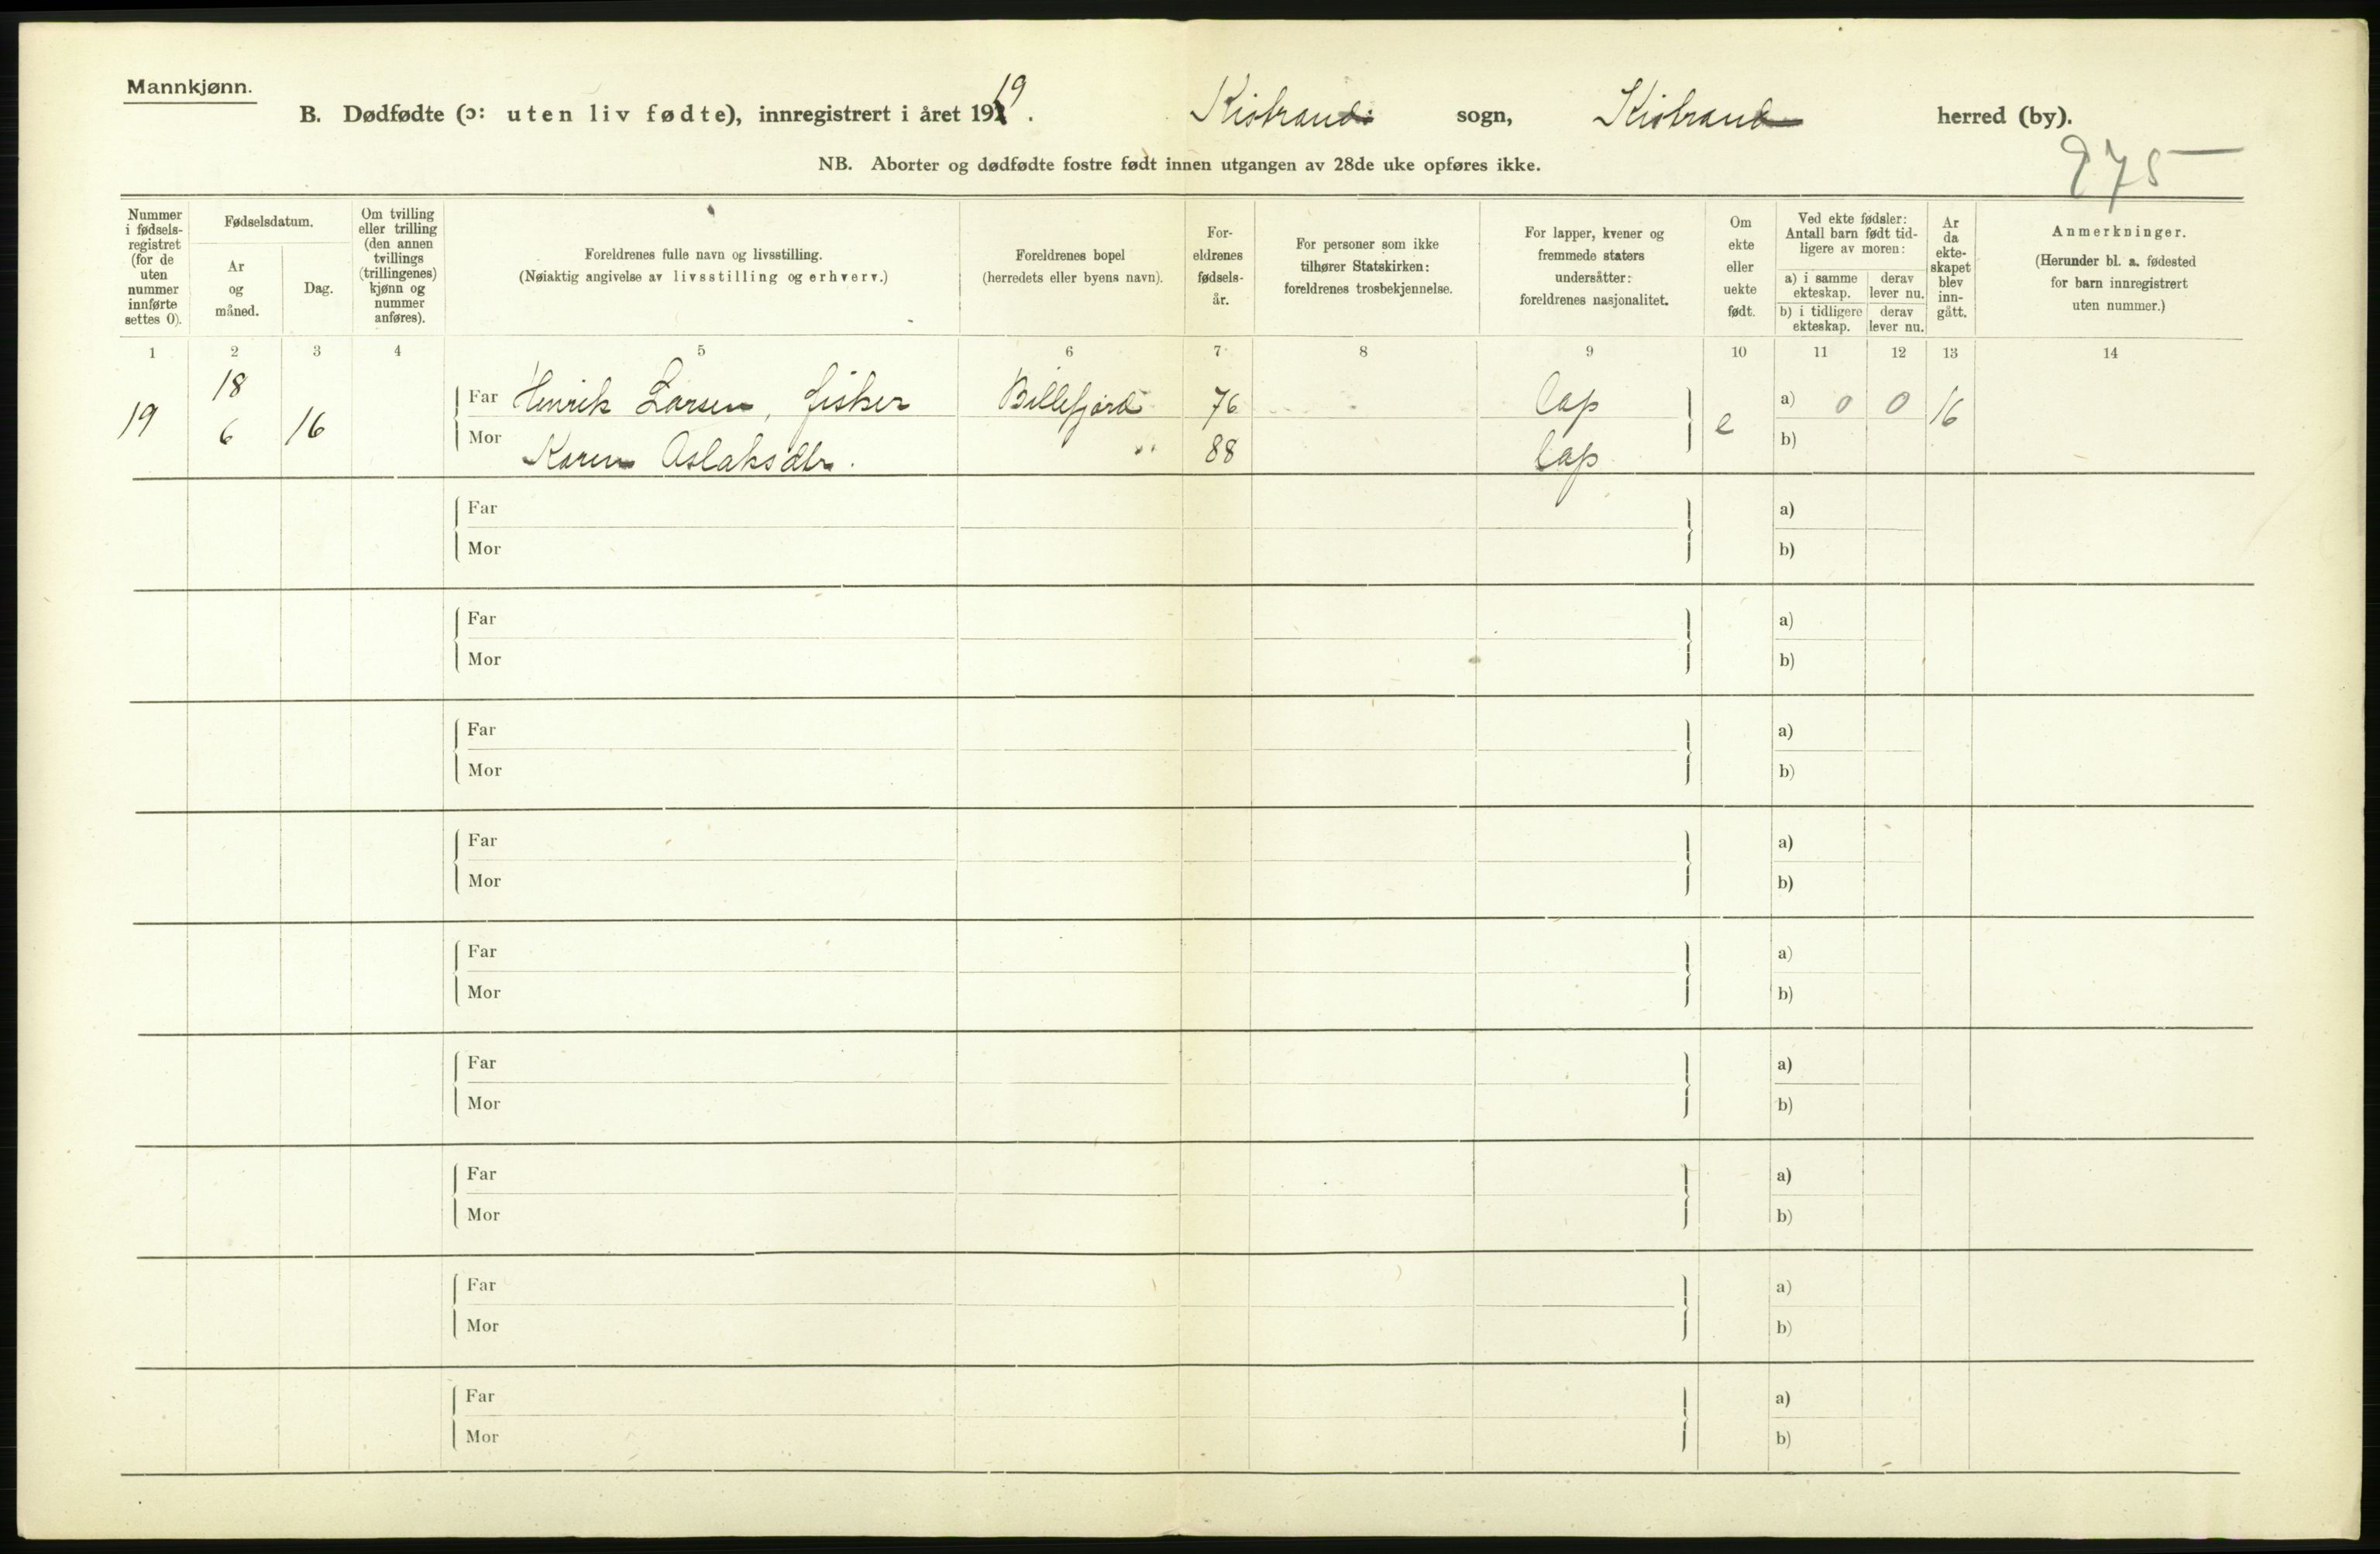 Mannkjønn.
B. Dødfødte (ɔ: uten liv fødte), innregistrert i året 1919. Kistrand sogn, Kistrand herred (by).
275
NB. Aborter og dødfødte fostre født innen utgangen av 28de uke opføres ikke.
Nummer i fødsels-registret (for de uten nummer innførte settes 0).
Fødselsdatum.
Ar og måned.
Dag.
Om tvilling eller trilling (den annen tvillings (trillingenes) kjønn og nummer anføres).
Foreldrenes fulle navn og livsstilling.
(Nøiaktig angivelse av livsstilling og erhverv.)
Foreldrenes bopel
(herredets eller byens navn).
For-eldrenes fødsels-år.
For personer som ikke tilhører Statskirken: foreldrenes trosbekjennelse.
For lapper, kvener og fremmede staters undersåtter: foreldrenes nasjonalitet.
Om ekte eller uekte født.
Ved ekte fødsler: Antall barn født tid-ligere av moren:
a) i samme ekteskap.
derav lever nu.
b) i tidligere ekteskap.
derav lever nu.
Ar da ekte-skapet blev inn-gått.
Anmerkninger.
(Herunder bl. a. fødested for barn innregistrert uten nummer.)
1 2 3 4 5 6 7 8 9 10 11 12 13 14
19 18 6 16 Far Henrik Larsen, fisker Billefjord 76 lap e a) 0 0 16
Mor Karen Aslaksdtr. " 88 lap b)
Far a)
Mor b)
Far a)
Mor b)
Far a)
Mor b)
Far a)
Mor b)
Far a)
Mor b)
Far a)
Mor b)
Far a)
Mor b)
Far a)
Mor b)
Far a)
Mor b)